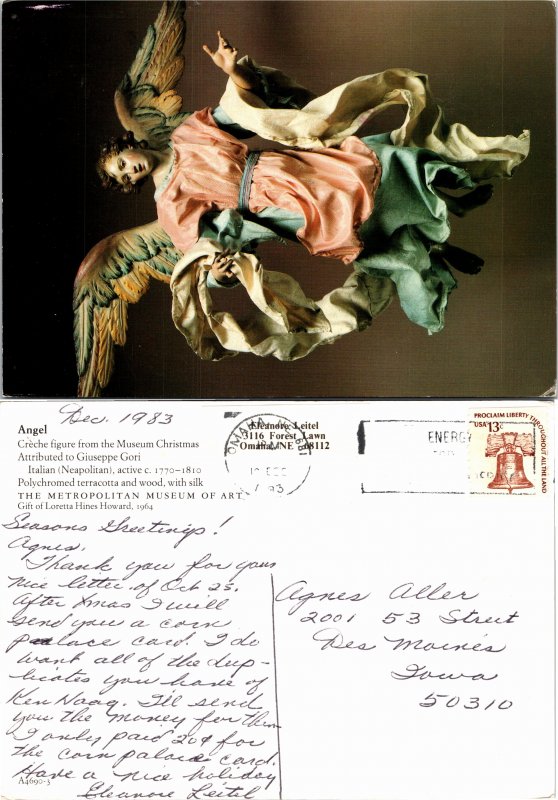 Dec. 1983
Angel
Crèche figure from the Museum Christmas
Attributed to Giuseppe Gori
Italian (Neapolitan), active c. 1770–1810
Polychromed terracotta and wood, with silk
THE METROPOLITAN MUSEUM OF ART
Gift of Loretta Hines Howard, 1964
Eleanore Leitel
3116 Forest Lawn
Omaha, NE 68112
OMAHA, NE 681
DEC
ENERGY
PROCLAIM LIBERTY THROUGHOUT ALL THE LAND
USA 13c
Seasons Greetings!
Agnes,
Thank you for your
nice letter of Oct 25.
After Xmas I will
send you a corn
palace card. I do
want all of the dup-
licates you have of
Ken Haag. I'll send
you the money for them
I only paid 20¢ for
the corn palace card.
Have a nice holiday
Eleanore Leitel
A4690-3
Agnes Aller
2001 53 Street
Des Moines
Iowa
50310